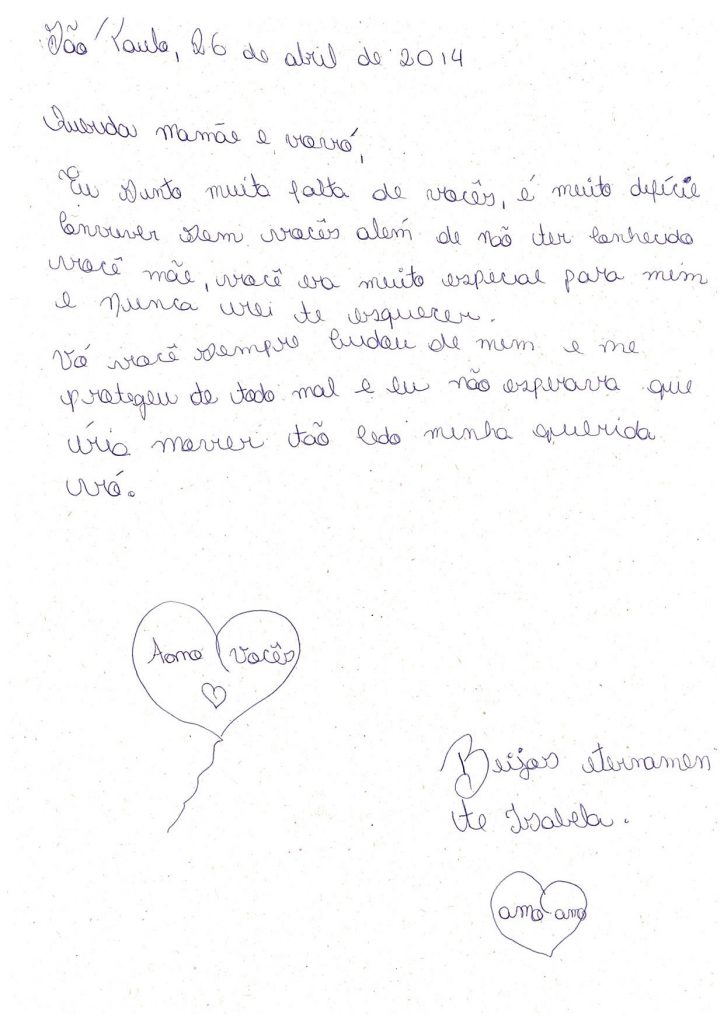 São Paulo, 26 de abril de 2014
Querida Mamãe e vovó,
Eu sinto muita falta de vocês, é muito difícil
conviver sem vocês além de não ter conhecido
você mãe, você era muito especial para mim
e nunca irei te esquecer.
Vó você sempre cuidou de mim e me
protegeu de todo mal e eu não esperava que
iria morrer tão cedo minha querida
vó.
Aomo vocês
Beijos eternamen
te Isabela.
amo amo